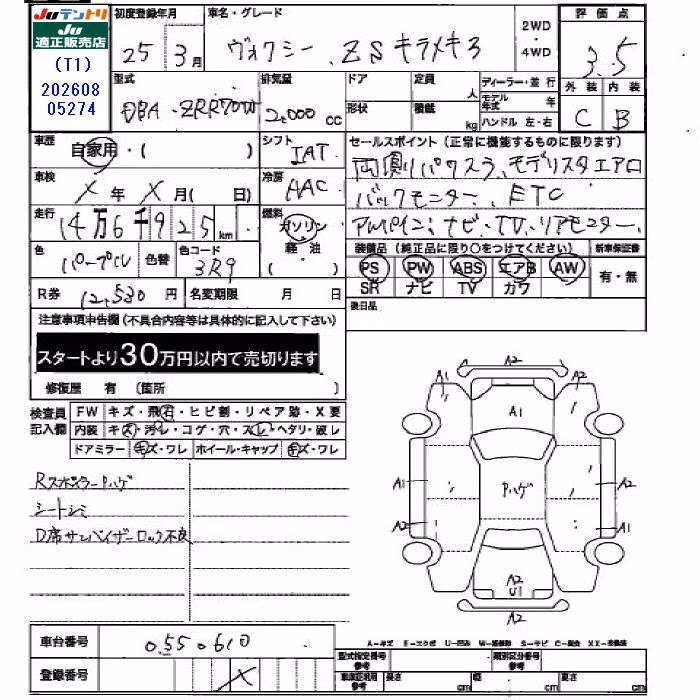 JUテントリ
JU
適正販売店
(T1)
202608
05274
初度登録年月
25 3月
車名・グレード
ヴォクシー ZS キラメキ3
2WD
・
4WD
評価点
3.5
外装 内装
C B
型式
DBA - ZRR70W
排気量
2,000 cc
ドア
形状
定員 人
積載 kg
ディーラー・並行
モデル年式 年
ハンドル 左・右
車歴
自家用・( )
シフト
IAT
車検
X 年 X 月( 日)
冷房
AAC
走行
14万6千925 km
燃料
ガソリン
軽・油
( )
色
パープル
色替
色コード
3R9
R券 12,530 円
名変期限 月 日
セールスポイント(正常に機能するものに限ります)
両側パワスラ、モデリスタエアロ
バックモニター、ETC
アルパインナビ・TV・リアモニター
装備品(純正品に限り○をつけてください)
新車保証書
PS PW ABS エアB AW
SR ナビ TV カワ
有・無
後日品
注意事項申告欄(不具合内容等は具体的に記入して下さい)
スタートより30万円以内で売切ります
修復歴 有 (箇所 )
検査員
記入欄
FW キズ・飛石・ヒビ割・リペア跡・X要
内装 キズ・汚レ・コゲ・穴・スレ・ヘタリ・破レ
ドアミラー キズ・ワレ ホイール・キャップ キズ・ワレ
RスポイラーPハゲ
シートシミ
D席サンバイザーロック不良
A2
A1 A2
A1
A1 Pハゲ A2
A2 A1
A2
U1
A2
A-キズ E-エクボ U-凹み W-補修跡 S-サビ C-腐食 XX-交換済
車台番号
0550610
登録番号
X
型式指定番号
参考
類別区分番号
参考
車庫証明用
参考
長さ cm
幅 cm
高さ cm